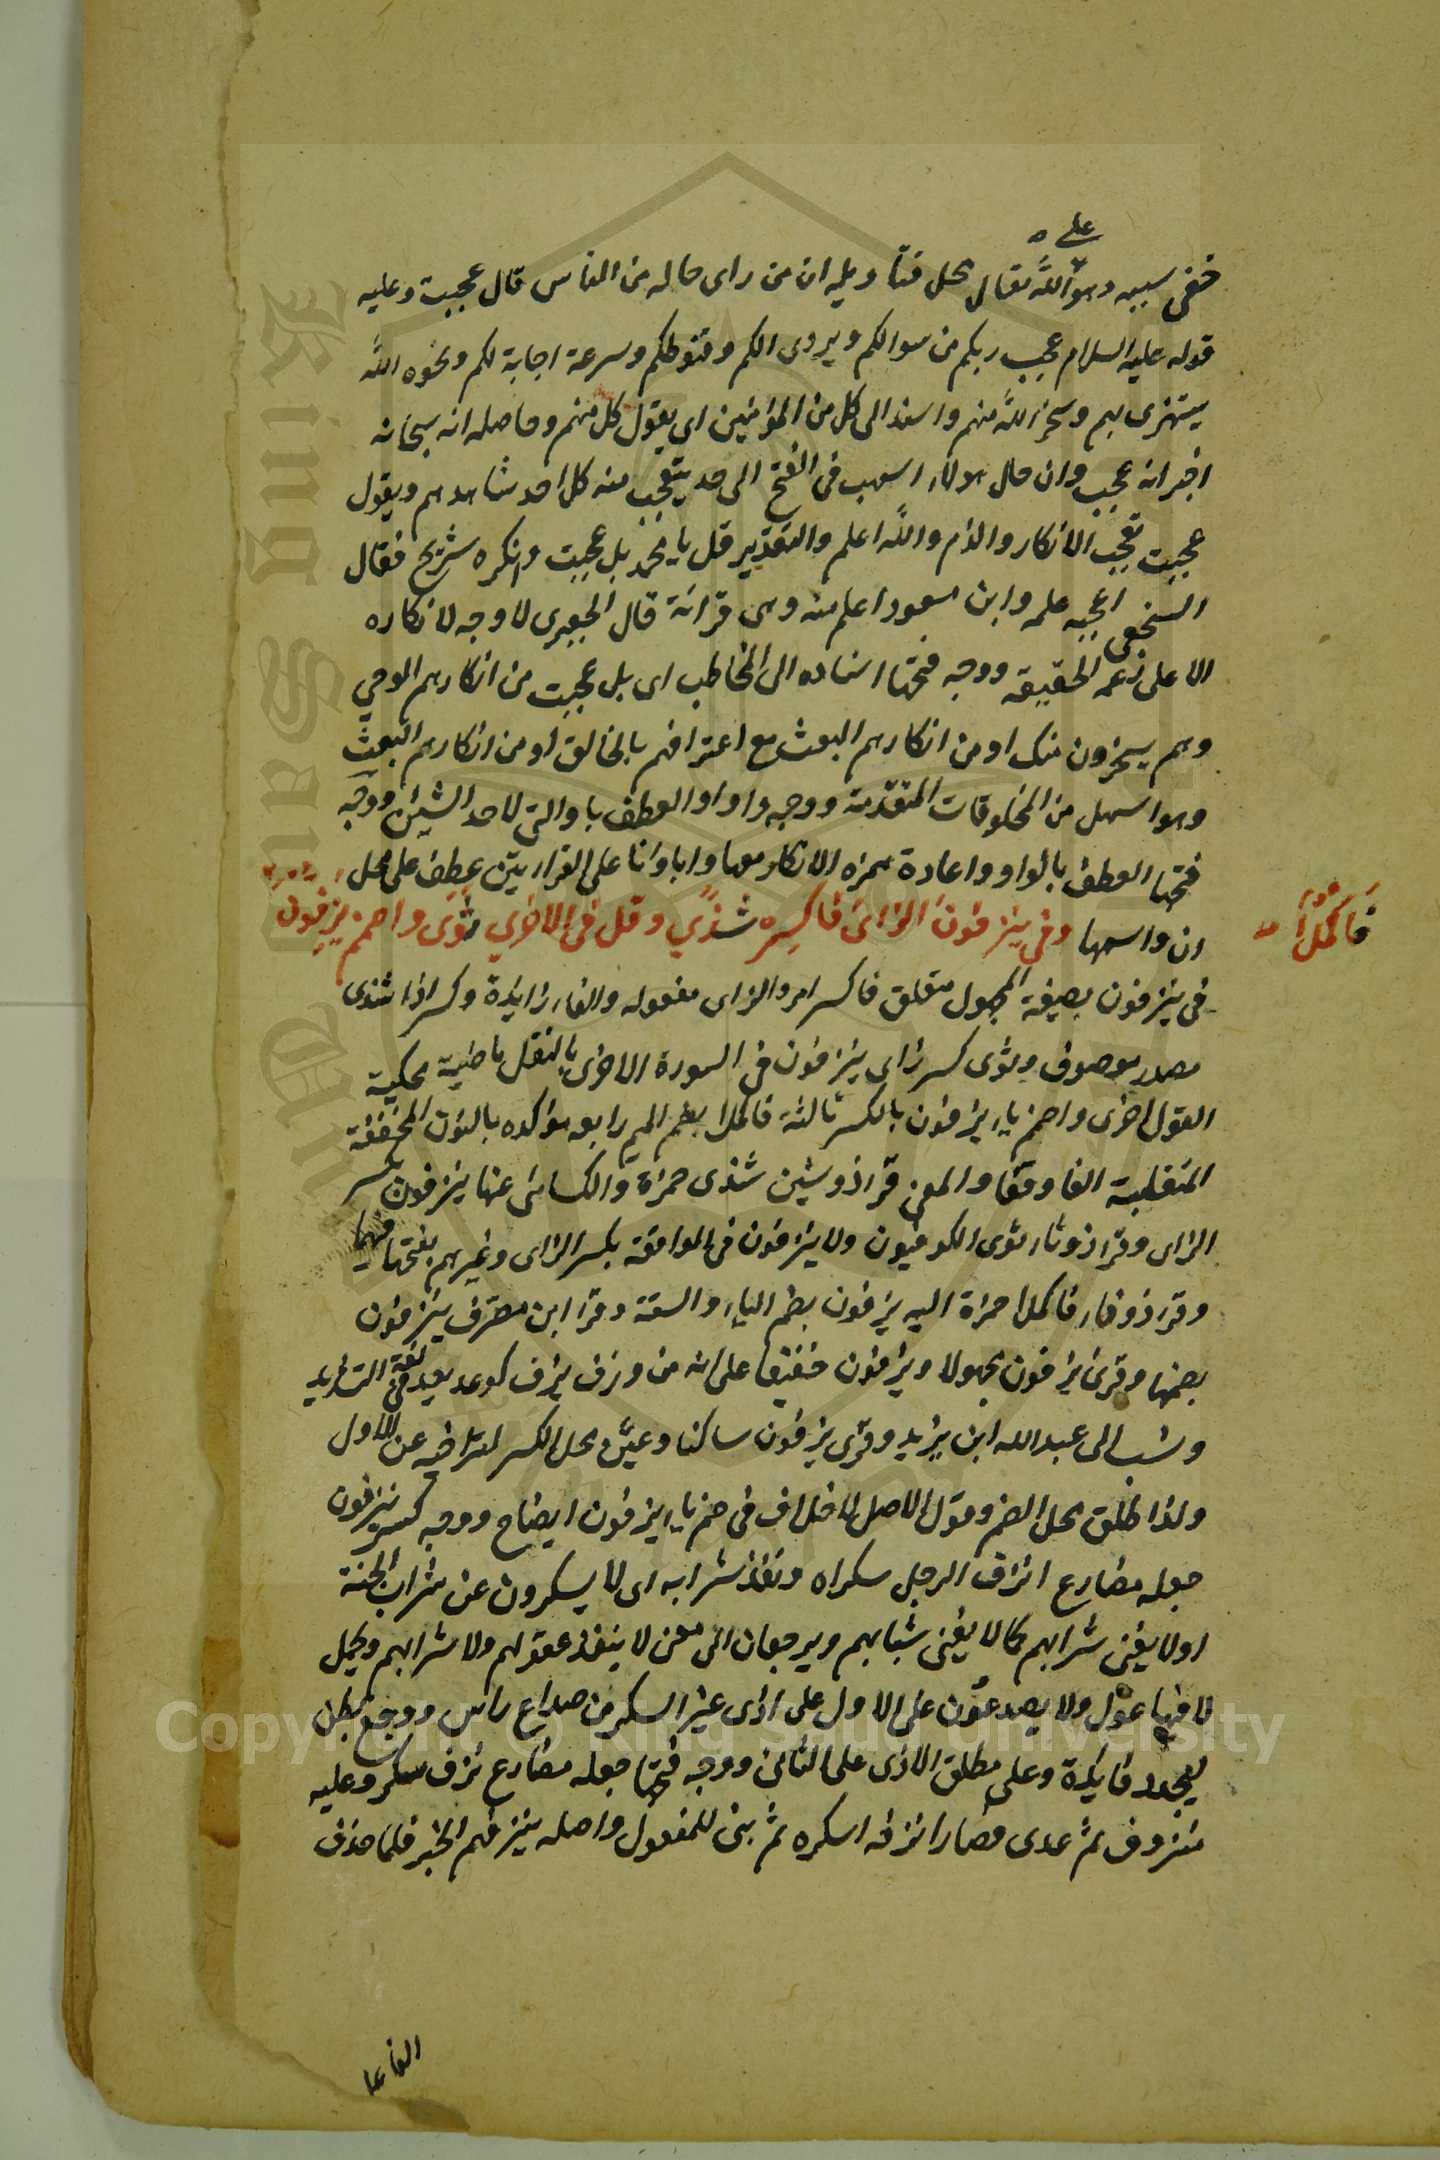 على
خفى سببه وهو الله تعال محل فتاويله ان من راى حاله من الناس قال عجبت وعليه
قوله عليه السلام عجب ربكم من سوالكم ويروى الكم وقنوطكم وسرعة اجابة لكم ونحوه الله
يستهزى بهم وسخر الله منهم واسند الى كل من المؤمنين اى يقول كل منهم وحاصله انه سبحانه
اخبر انه عجب وان حال هولاء اسهب فى الفتح الى حد يتعجب منه كل احد شاهدهم ويقول
عجبت تعجب الانكار والذم والله اعلم والتقدير قل يا محمد بل عجبت وانكره شريح فقال
النخعى اعجبه علمه وابن مسعود اعلم منه وهى قرائة قال الجعبرى لا وجه لانكاره
الا على زعمه الحقيقه ووجه فتحها اسناده الى المخاطب اى بل عجبت من انكارهم الوحي
وهم يسخرون منك او من انكارهم البعث مع اعترافهم بالخالق او من انكارهم البعث
وهو اسهل من المخلوقات المتقدمة ووجه واو او العطف باو التى لاحد الشيئين ووجه
فتحها العطف بالواو واعادة همزه الانكار معها واباؤنا على القرائتين عطف على محل
ان واسمها وفى ينزفون الزاى فاكسره شذى وقل فى الاخرى ثوى واضمم يزفون
فاكملا
فى ينزفون بصيغة المجهول متعلق فاكسر امر والزاى مفعوله والفاء زايدة وكسرا ذا شذى
مصدر موصوف وثوى كسر زاى ينزفون فى السورة الاخرى بالنقل ماضية محكية
القول اخرى واضمم ياء يزفون بالكسر ثالثة فاكملا بضم الميم رابعه مؤكده بالنون المخففة
المنقلبة الفا وقفا والمعنى قرا ذو شين شذى حمزة والكسائى عنها ينزفون بكسر
الزاى وقرا ذو ثاء ثوى الكوفيون ولا ينزفون فى الواقعة بكسر الزاى وغيرهم بفتحها فيهما
وقرا ذو فاء فاكملا حمزة اليه يزفون بضم الياء والستة وقرا ابن مصرف ينزفون
بضمها وقرئ يزفون مجهولا ويزفون خفيفا على انه من وزف يزف كوعد يعد فى لغة التشديد
ونسب الى عبد الله ابن يزيد وقرى يزفون ساكنا وعين محل الكسر لتراخيه عن الاول
ولذا اطلق محل الضم وقول الاصل لا خلاف فى ضم ياء ينزفون ايضاح ووجه كسر ينزفون
جعله مضارع انزف الرجل سكراه ونفذ شرابه اى لا يسكرون عن شراب الجنة
اولا يفنى شرابهم كما لا يفنى شبابهم ويرجعان الى معنى لا ينفذ عقولهم ولا شرابهم ويحمل
لا فيها غول ولا يصدعون على الاول على اذى غير السكر من صداع راس ووجع بطن
ليجدد فايدة وعلى مطلق الاذى على الثانى ووجه فتحها جعله مضارع نزف سكر وعليه
منزوف ثم عدى فصار انزفه اسكره ثم بنى للمفعول واصله ينزفهم الخمر فلما حذف
الفاعل